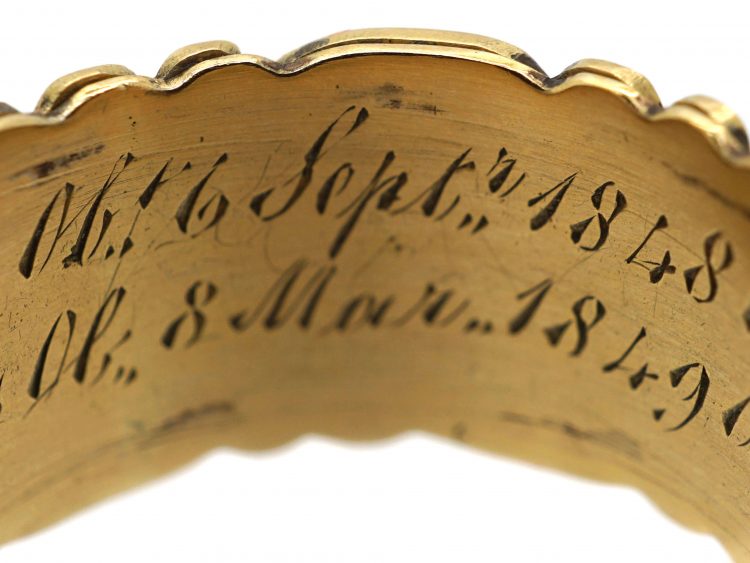 Ob,,t 6 Sept,,r 1848
Ob,, 8 Mar,, 1849